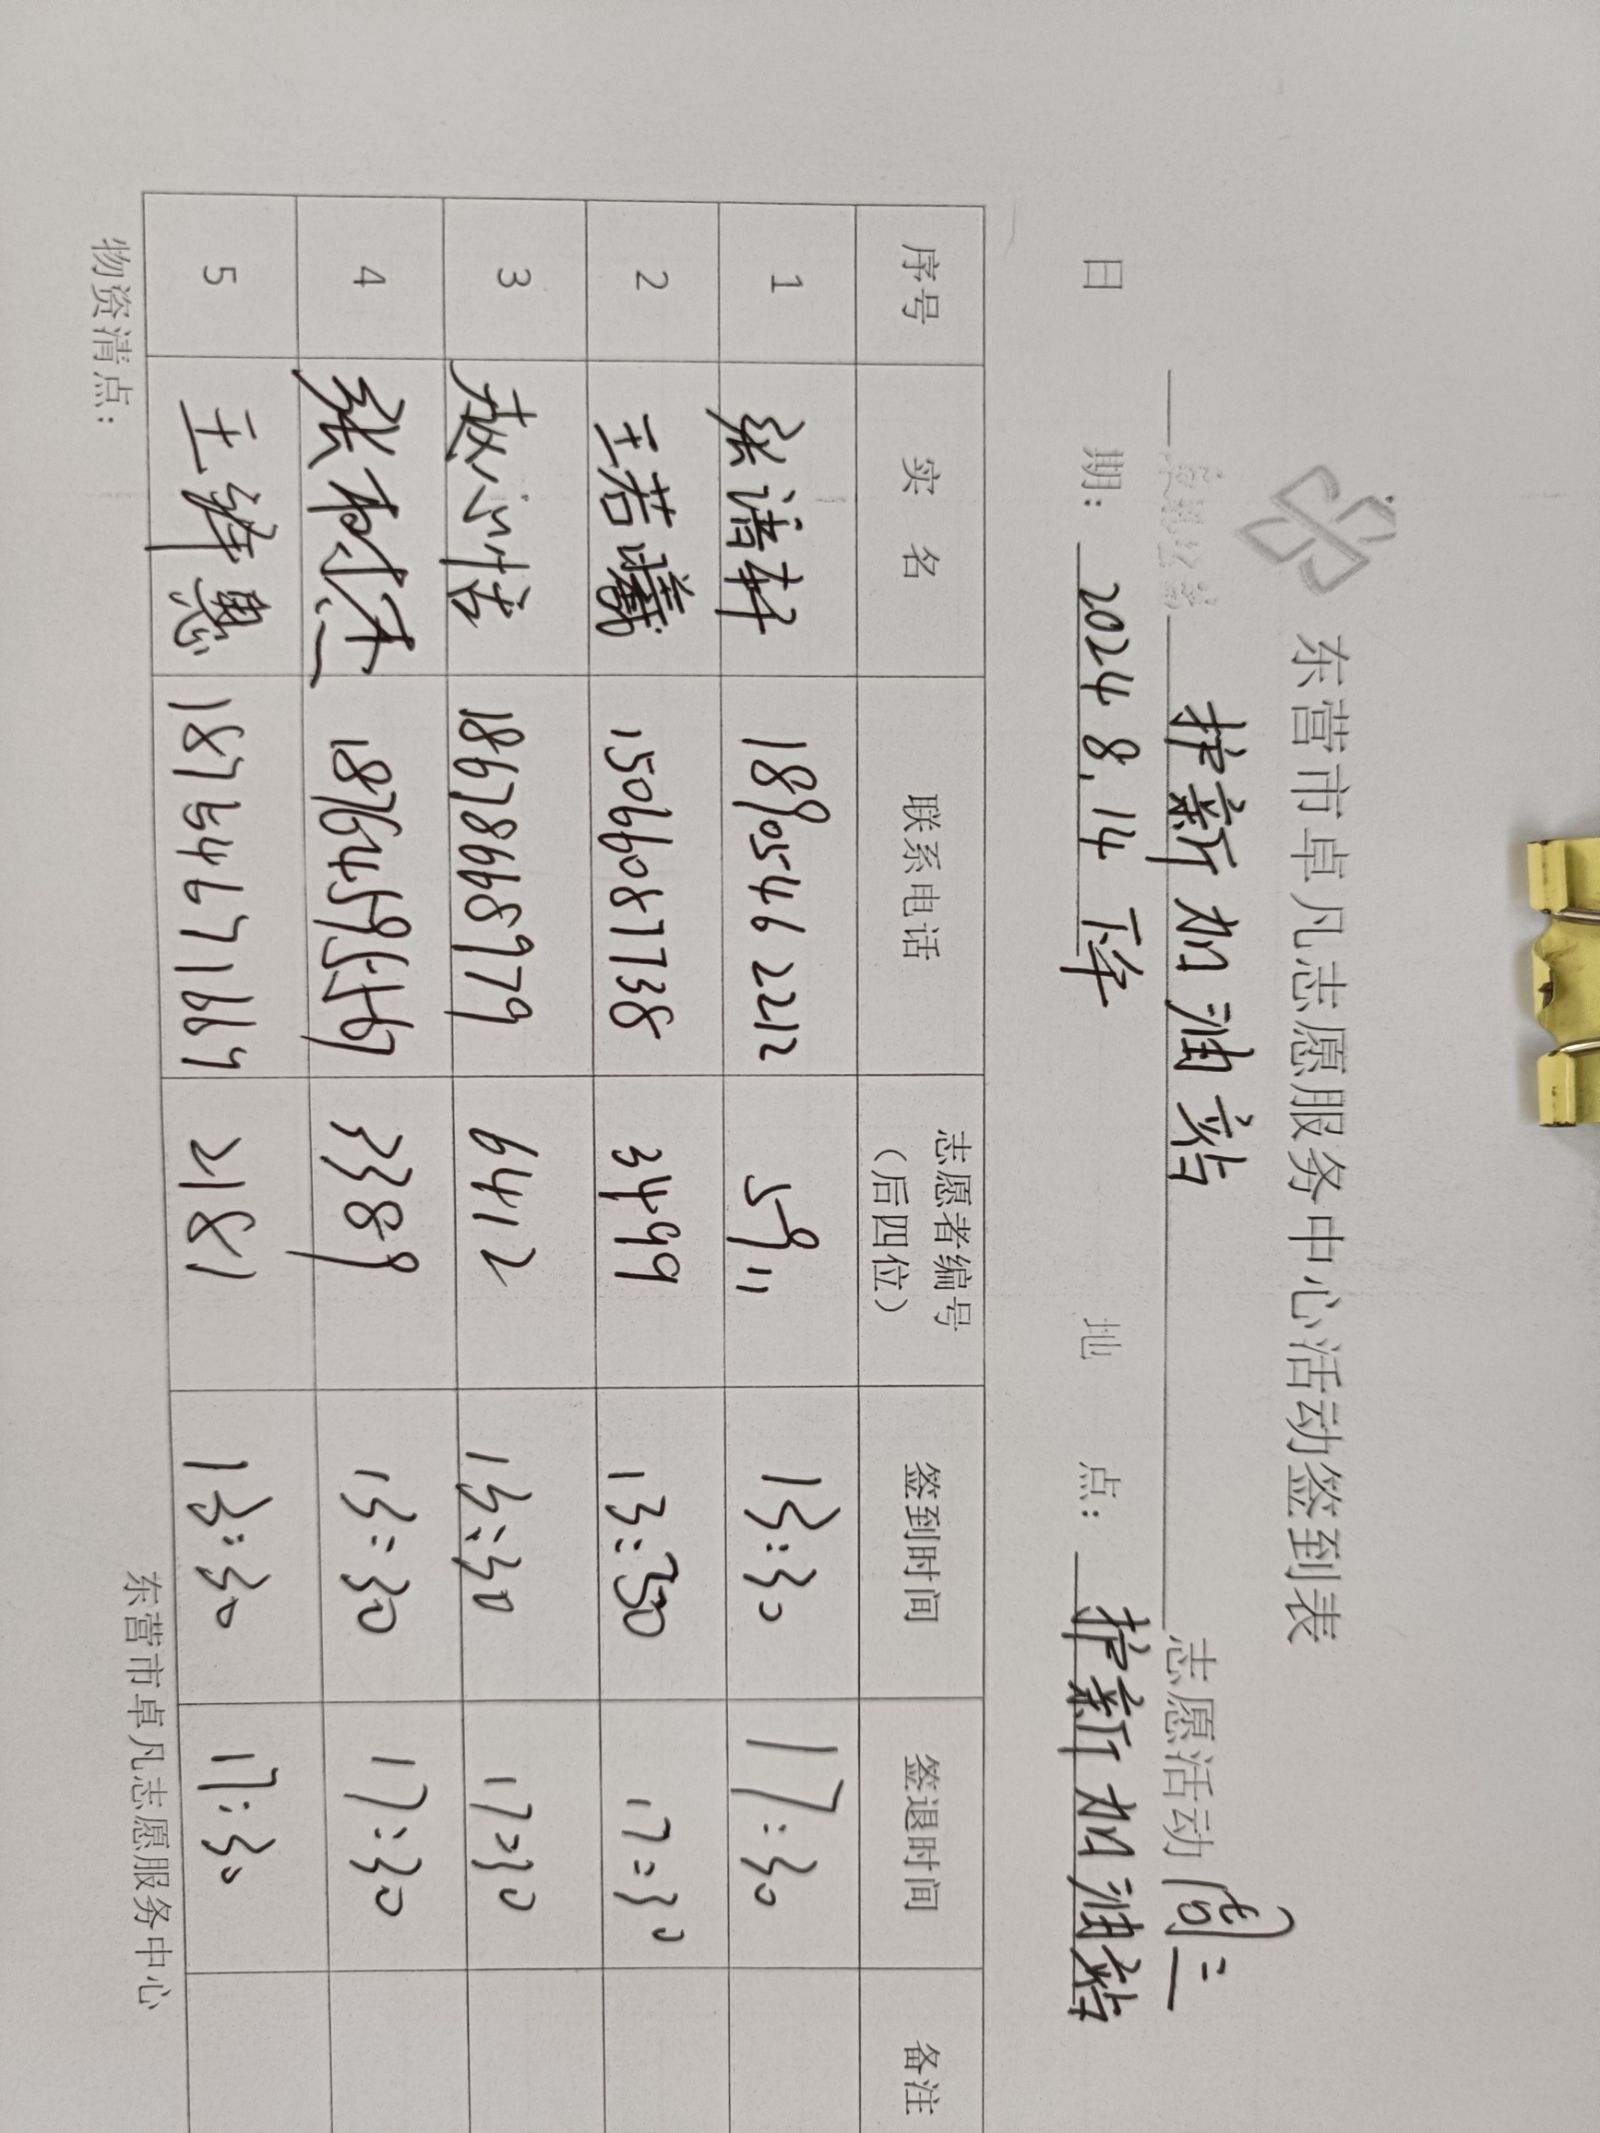 东营市卓凡志愿服务中心活动签到表
护新加油站 志愿活动 周三
日 期: 2024 8.14 下午 地 点: 护新加油站
序号 实 名 联系电话 志愿者编号(后四位) 签到时间 签退时间 备注
1 张诺轩 18905462212 5911 13:30 17:30
2 王若曦 15066087738 3499 13:30 17:30
3 赵心怡 18678668979 6412 13:30 17:30
4 张树杰 18764595569 3389 13:30 17:30
5 王绎惠 18754671669 2181 13:30 17:30
物资清点:
东营市卓凡志愿服务中心